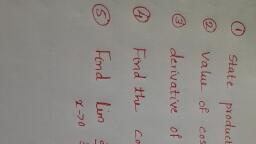 ① State product
② Value of cos
③ derivative of
④ Find the co
⑤ Find lim
x→0